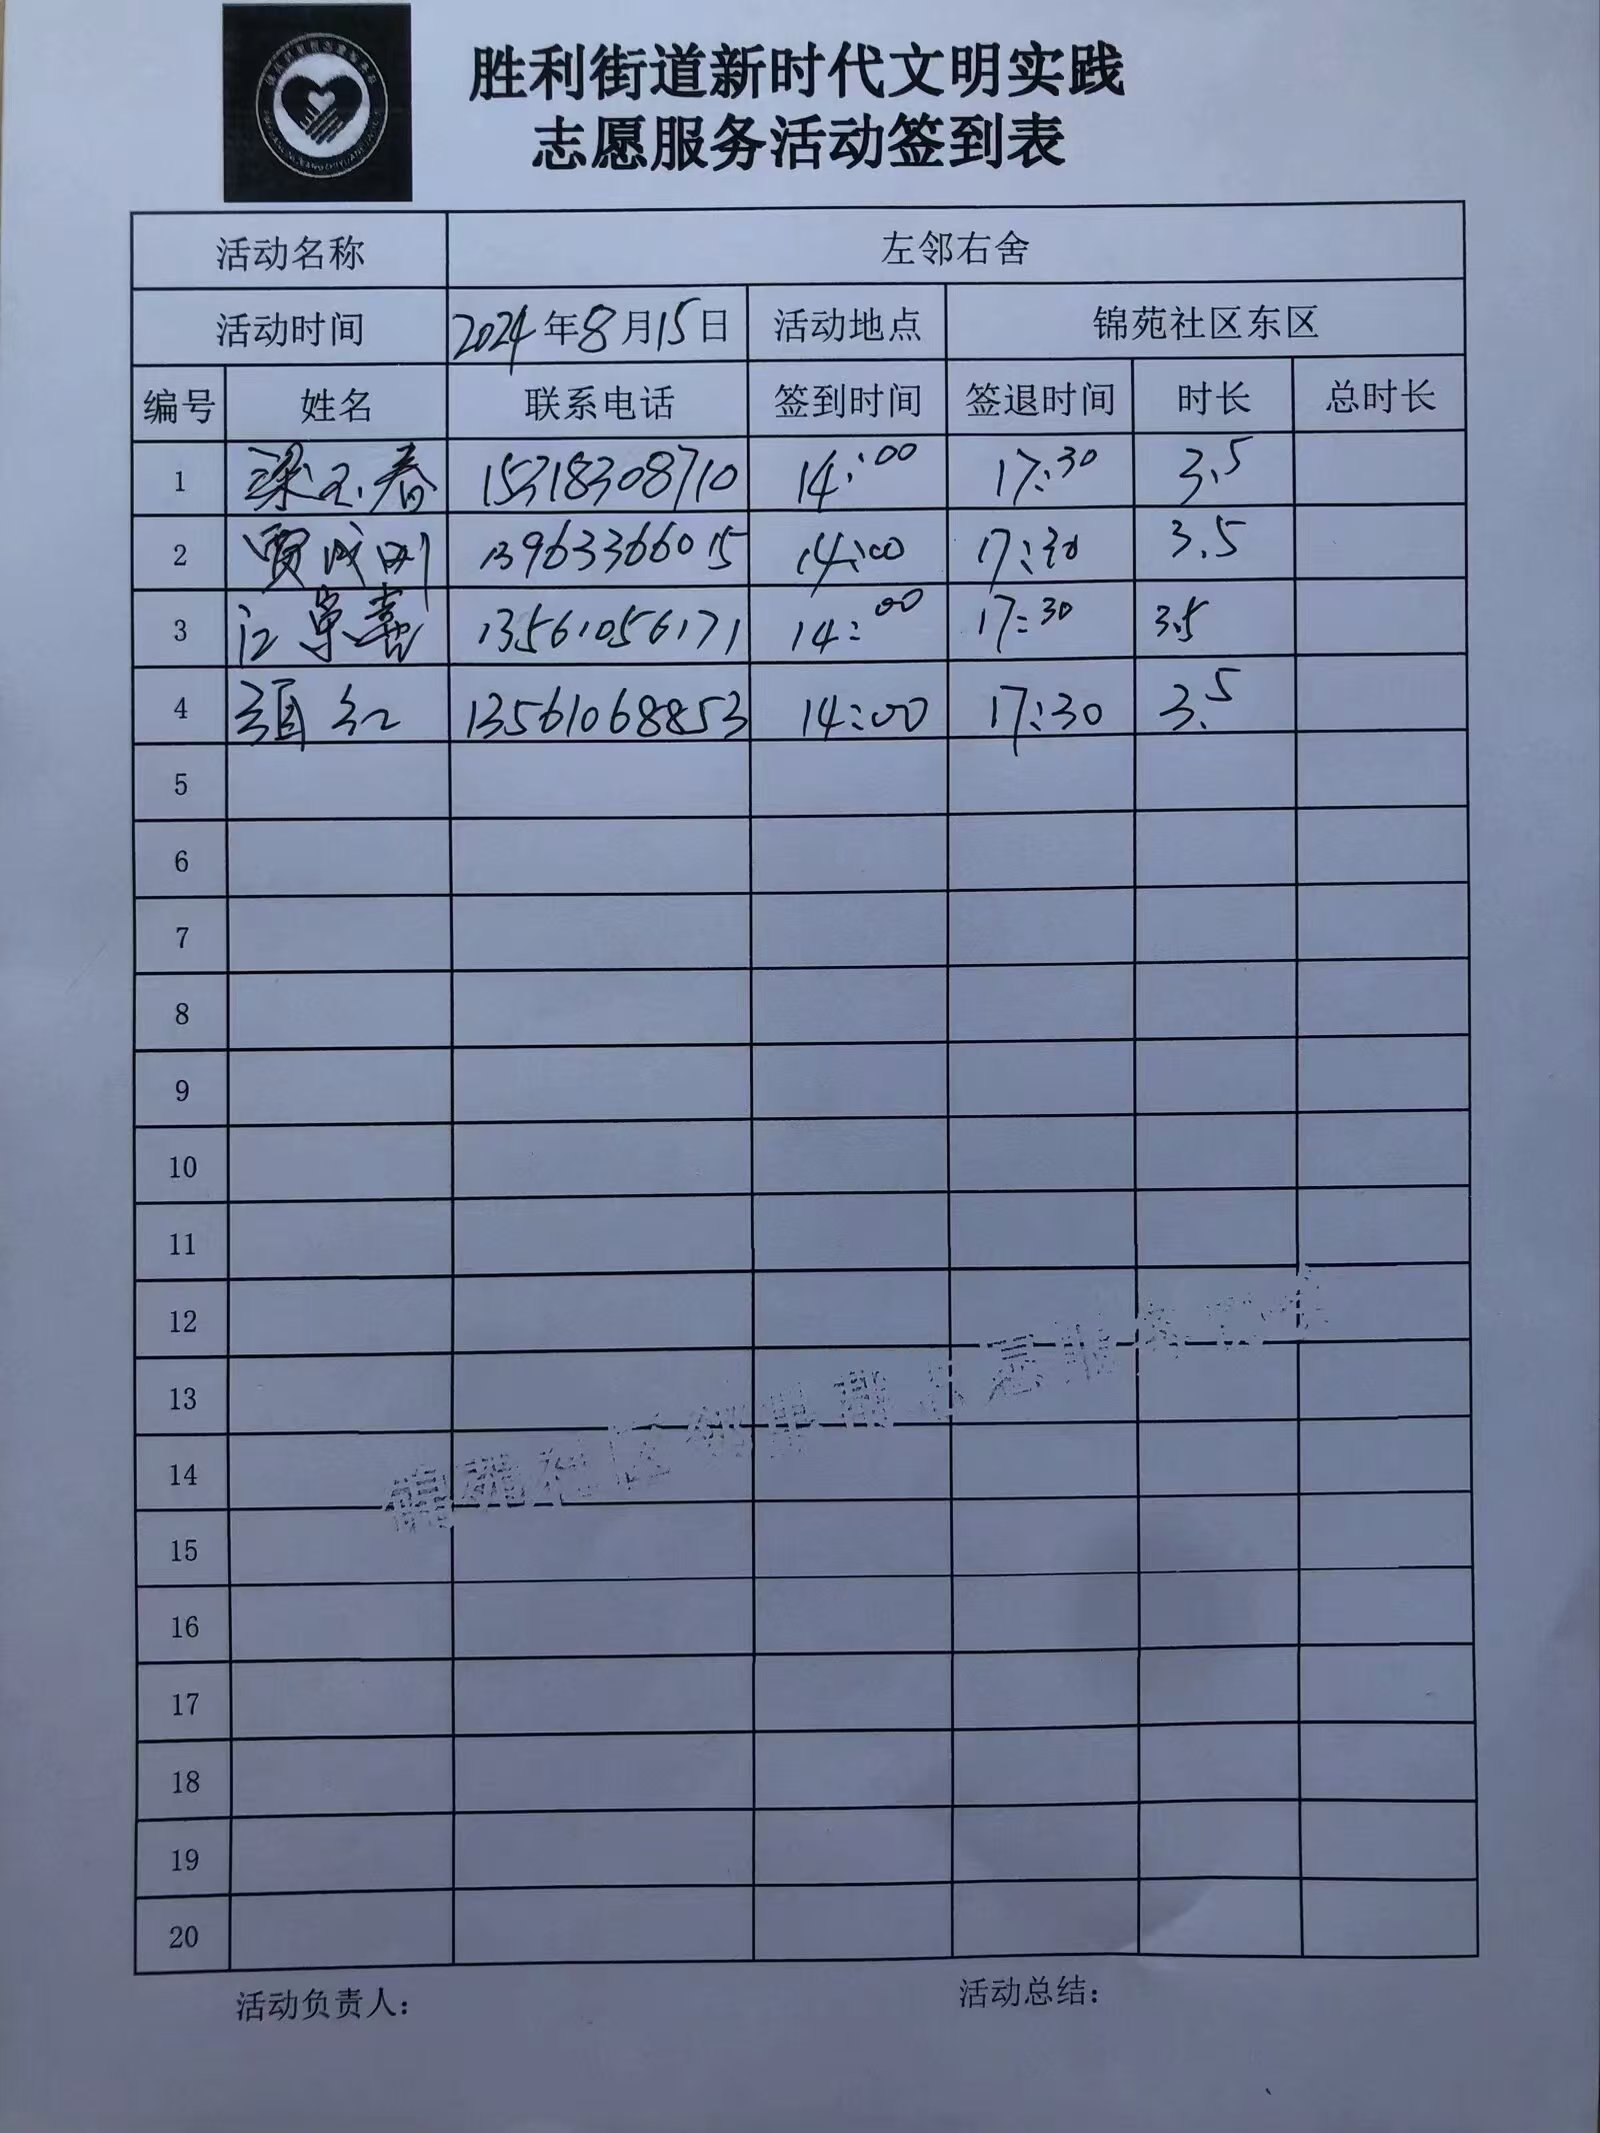 胜利街道新时代文明实践
志愿服务活动签到表
活动名称 左邻右舍
活动时间 2024年8月15日 活动地点 锦苑社区东区
编号 姓名 联系电话 签到时间 签退时间 时长 总时长
1 梁玉春 15318308710 14:00 17:30 3.5
2 贾成刚 13963366015 14:00 17:30 3.5
3 江景喜 13561056171 14:00 17:30 3.5
4 红 13561068853 14:00 17:30 3.5
5
6
7
8
9
10
11
12
13
14
15
16
17
18
19
20
活动负责人: 活动总结: